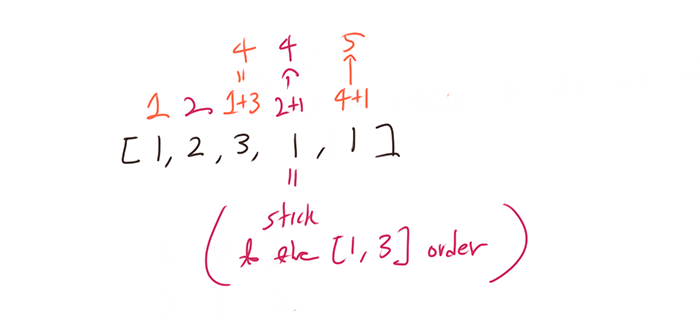 4 4 5
= ↑ ↑
1 2 1+3 2+1 4+1
[1, 2, 3, 1, 1]
=
( stick
to the [1, 3] order )